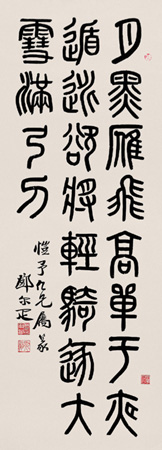 月黑雁飛高單于夜
遁逃欲將輕騎逐大
雪滿弓刀
愷予仁兄屬篆
鄧爾疋